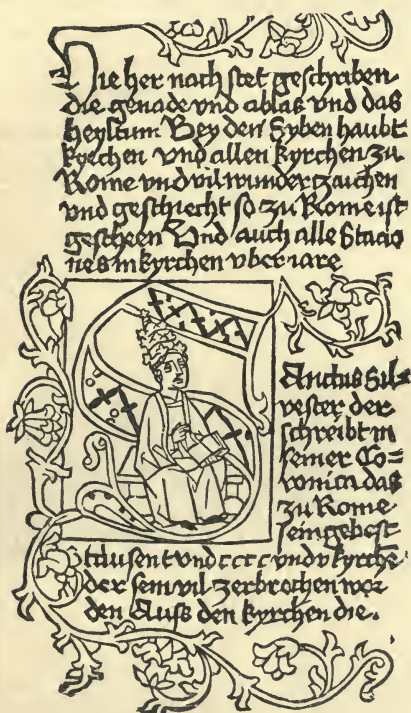 Hie her nach stet geschriben
die genade vnd ablas vnd das
heyltum Bey den Syben haubt
kyrchen vnd allen kyrchen zu
Rome vnd vil wunder tzaichen
vnd geschiecht so zu Rome ist
gescheen Vnd auch alle Stacio
nes in kyrchen vber iare
Anctus Sil=
vester der
schreibt in
seiner Co=
ronica das
zu Rome
sein gebest
tausent vnd cccc vnd v kyrche
der sein vil zerbrochen wor
den Auss den kyrchen die.